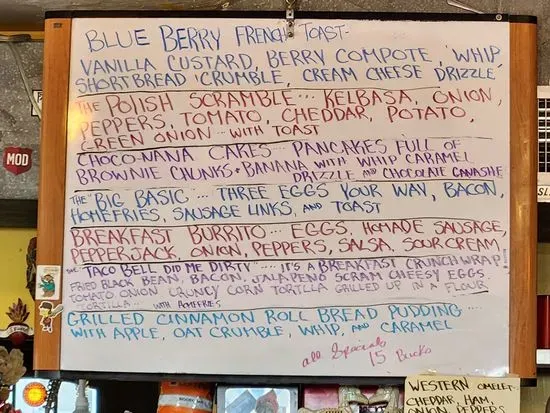 BLUE BERRY FRENCH TOAST-
VANILLA CUSTARD, BERRY COMPOTE, WHIP
SHORTBREAD CRUMBLE, CREAM CHEESE DRIZZLE
THE POLISH SCRAMBLE... KELBASA, ONION,
PEPPERS, TOMATO, CHEDDAR, POTATO,
GREEN ONION -- WITH TOAST
CHOCO-NANA CAKES... PANCAKES FULL OF
BROWNIE CHUNKS + BANANA WITH WHIP CARAMEL
DRIZZLE AND CHOCOLATE GANASHE
THE BIG BASIC... THREE EGGS YOUR WAY, BACON,
HOMEFRIES, SAUSAGE LINKS, AND TOAST
BREAKFAST BURRITO... EGGS, HOMADE SAUSAGE,
PEPPERJACK, ONION, PEPPERS, SALSA, SOUR CREAM,
THE "TACO BELL DID ME DIRTY"... IT'S A BREAKFAST CRUNCHWRAP
FRIED BLACK BEAN, BACON, JALAPENO SCRAM CHEESY EGGS,
TOMATO ONION CRUNCY CORN TORTILLA GRILLED UP IN A FLOUR
TORTILLA... WITH HOMEFRIES
GRILLED CINNAMON ROLL BREAD PUDDING...
WITH APPLE, OAT CRUMBLE, WHIP, AND CARAMEL
all Specials
15 Bucks
MOD
WESTERN OMELET-
CHEDDAR, HAM,
ONION